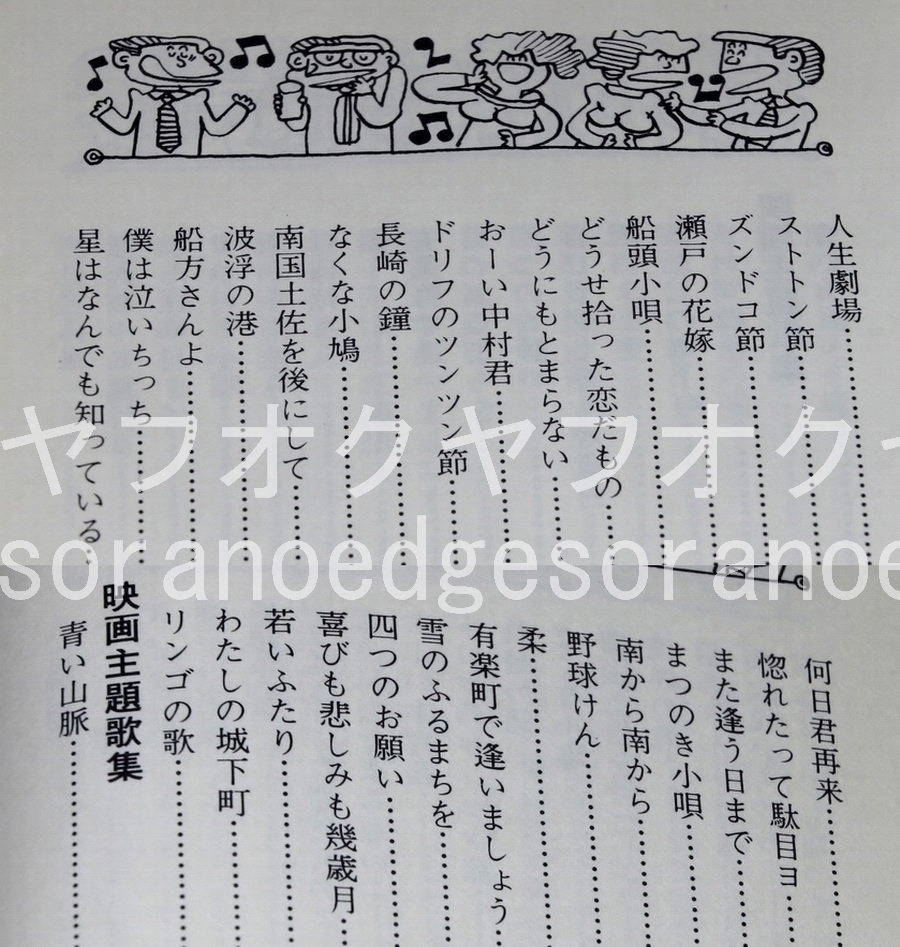 人生劇場
ストトン節
ズンドコ節
瀬戸の花嫁
船頭小唄
どうせ拾った恋だもの
どうにもとまらない
おーい中村君
ドリフのツンツン節
長崎の鐘
なくな小鳩
南国土佐を後にして
波浮の港
船方さんよ
僕は泣いちっち
星はなんでも知っている
ヤフオクヤフオクヤ
soranoedgesoranoe
何日君再来
惚れたって駄目ヨ
また逢う日まで
まつのき小唄
南から南から
野球けん
柔
有楽町で逢いましょう
雪のふるまちを
四つのお願い
喜びも悲しみも幾歳月
若いふたり
わたしの城下町
リンゴの歌
映画主題歌集
青い山脈